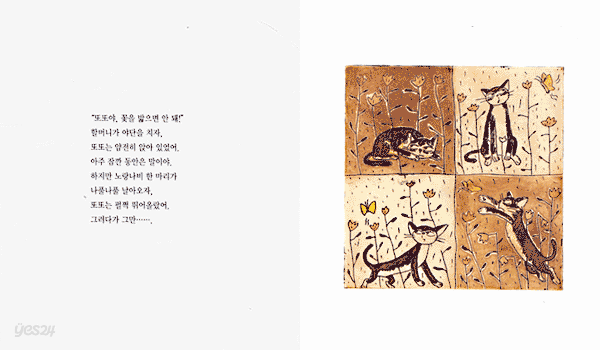 "또또야, 꽃을 밟으면 안 돼!"
할머니가 야단을 치자,
또또는 얌전히 앉아 있었어.
아주 잠깐 동안은 말이야.
하지만 노랑나비 한 마리가
나풀나풀 날아오자,
또또는 펄쩍 뛰어올랐어.
그러다가 그만…….
yes24